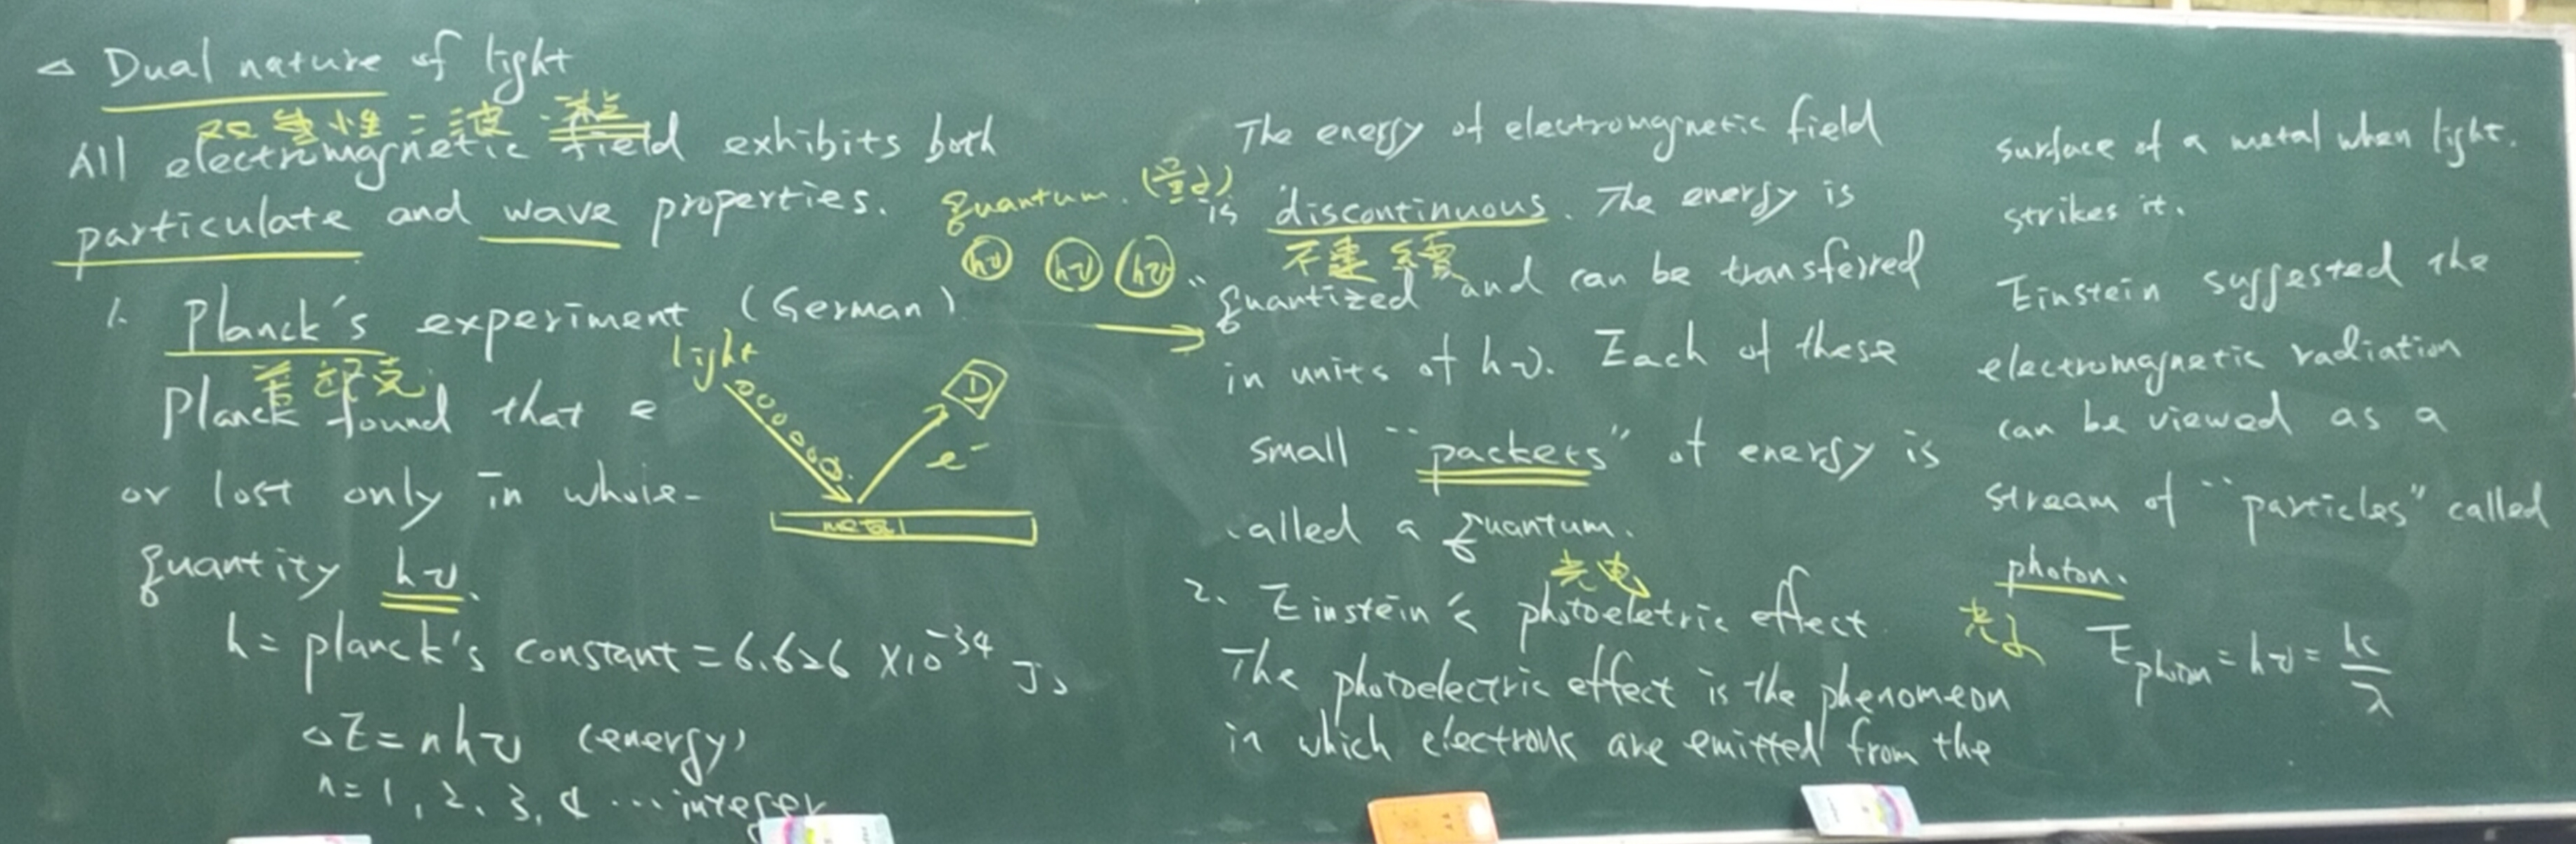 △ Dual nature of light
双重性=波·粒
All electromagnetic field exhibits both
particulate and wave properties.
1. Planck's experiment (German)
普朗克
Planck found that e
or lost only in whole-
quantity hν.
h = planck's constant = 6.626 ×10⁻³⁴ Js
△E = nhν (energy)
n = 1, 2, 3, 4 ... integer
light
D
e⁻
metal
quantum. (量子)
hν hν hν
The energy of electromagnetic field
is discontinuous. The energy is
不連續
"quantized and can be transferred
in units of hν. Each of these
small "packets" of energy is
called a quantum.
光电
2. Einstein's photoeletric effect
The photoelectric effect is the phenomeon
in which electrons are emitted from the
surface of a metal when light.
strikes it.
Einstein suggested the
electromagnetic radiation
can be viewed as a
stream of "particles" called
photon.
光子
Ephoton = hν = hc/λ